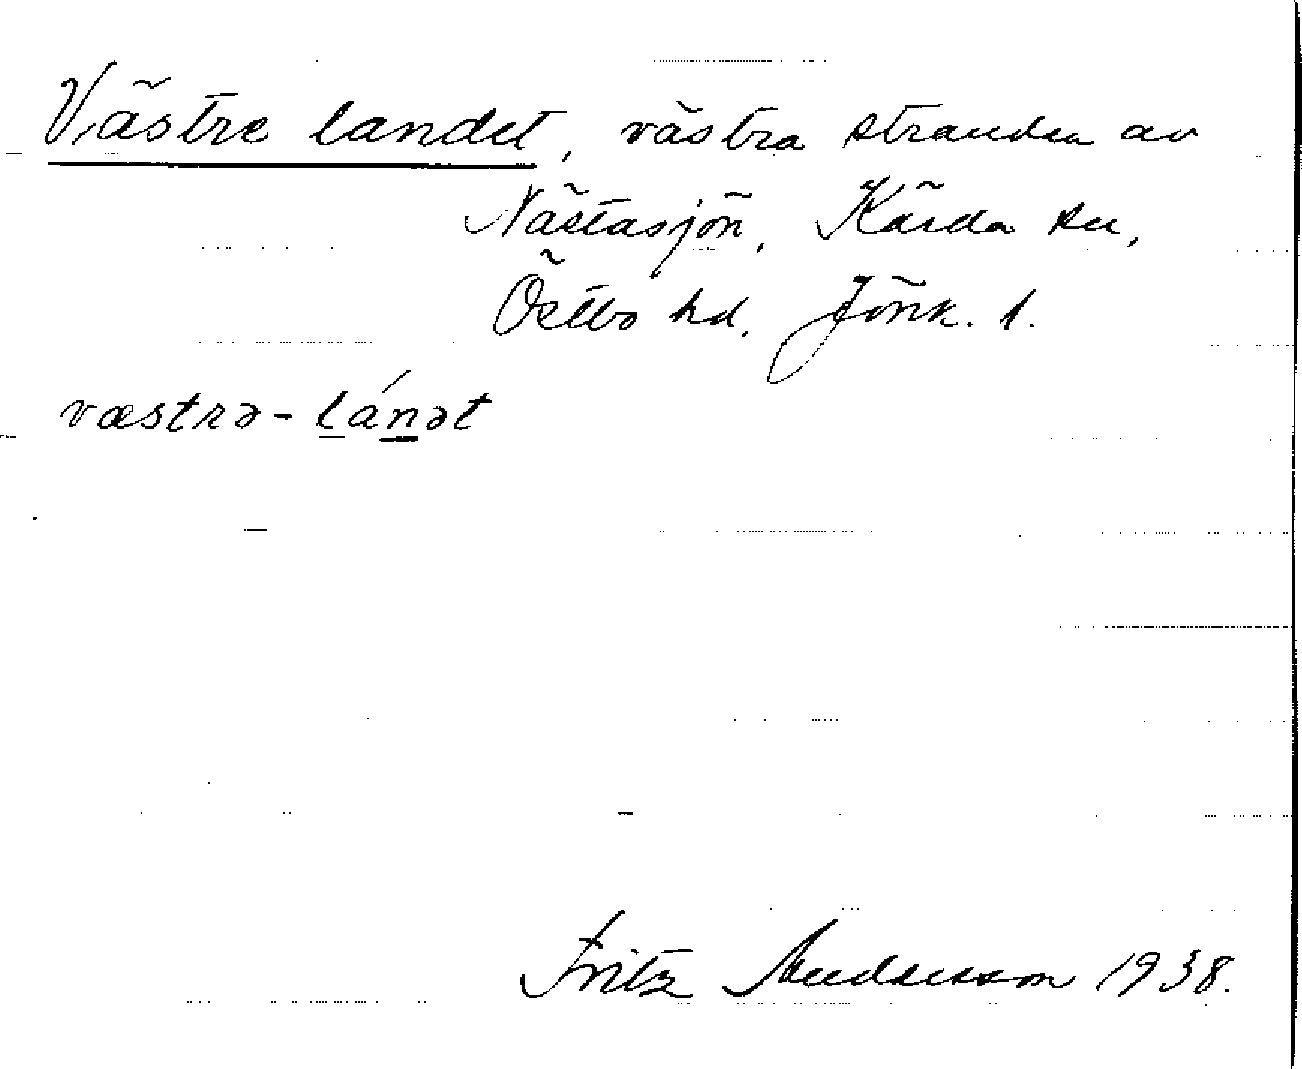 Västre landet, västra stranden av
Nästasjön, Kärda sn,
Östbo hd. Jönk. l.
væstrə-lánət
Fritz Andersson 1938.